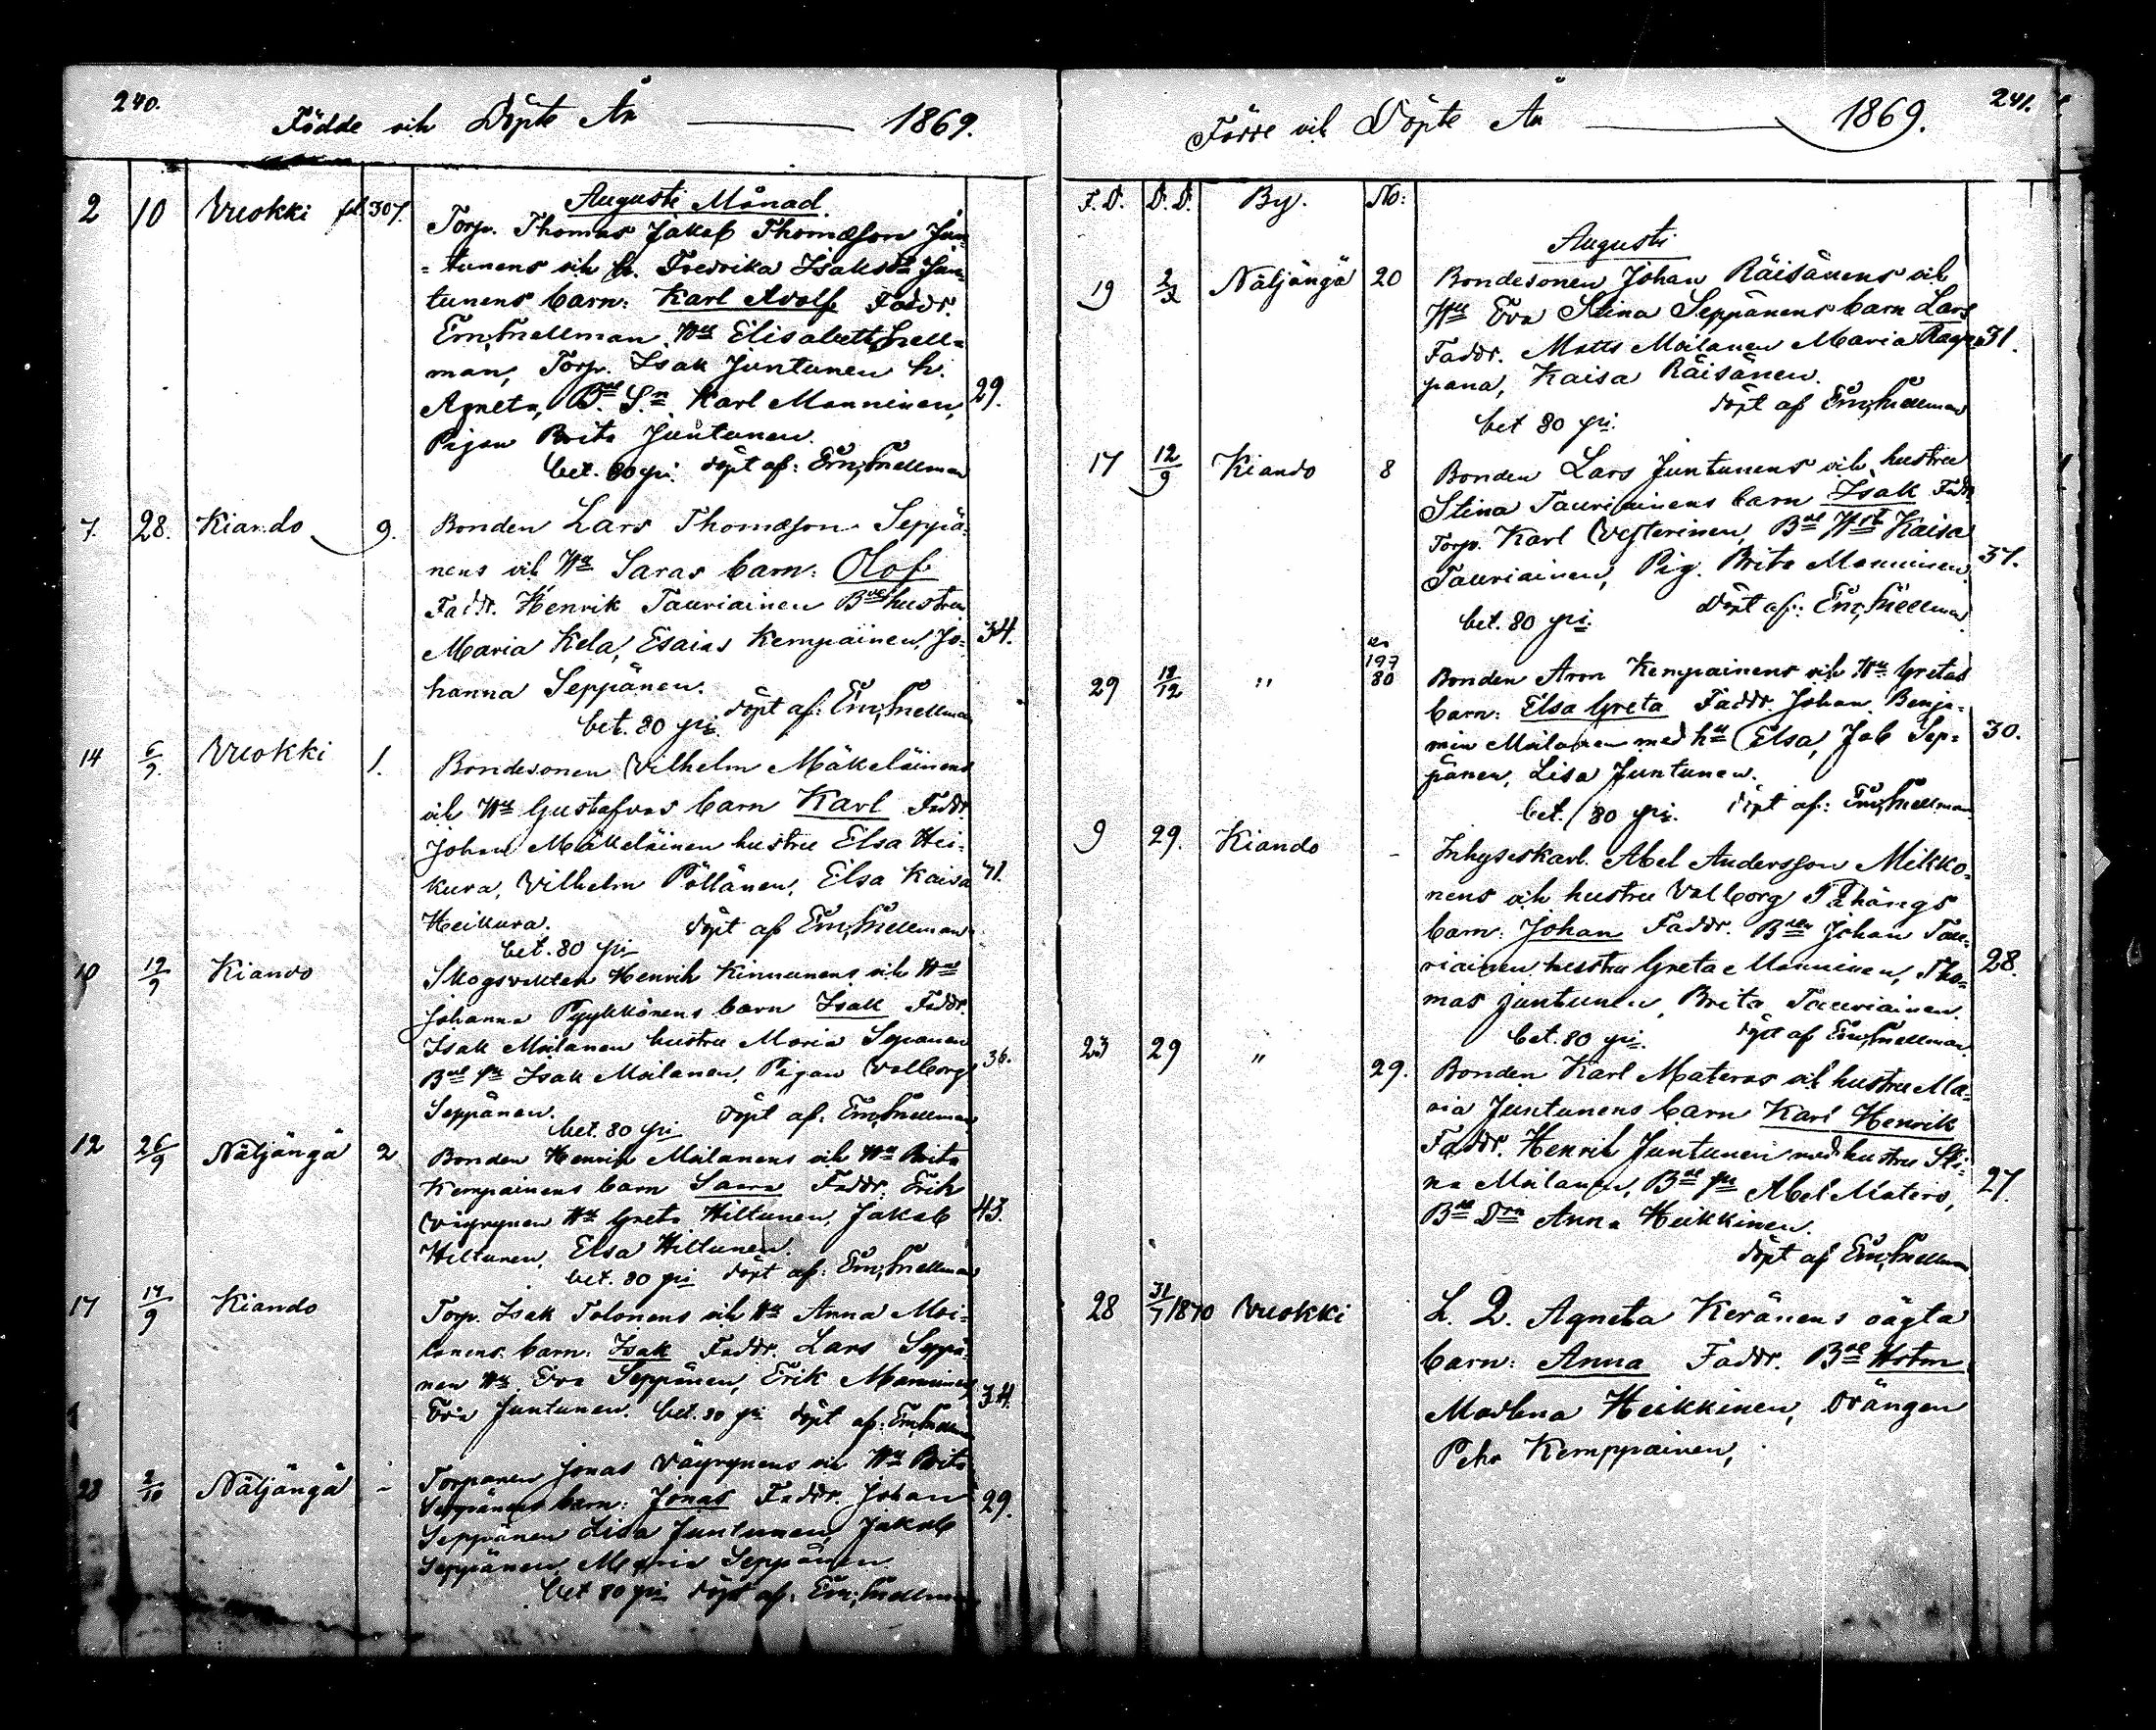 240.
Födde och Döpte År 1869.
Augusti Månad.
2 10 Vuokki fol. 307. Torp. Thomas Jakob Thomæsson Jun-
tunens och h. Fredrika Isaksdr Jun-
tunens barn: Karl Adolf Faddr.
Em. Snellman, Hu Elisabeth Snell-
man, Torp. Isak Juntunen h.
Agneta, Bde Sn Karl Manninen, 29.
Pigan Brita Juntunen.
bet. 80 pi. döpt af: Em. Snellman
7. 28. Kiando 9. Bonden Lars Thomæsson Seppä-
nens och Hu Saras barn: Olof
Faddr. Henrik Tauriainen Bde hustru
Maria Kela, Esaias Kempainen, Jo- 34.
hanna Seppänen.
bet. 80 pi. döpt af: Em. Snellman
14 6/9. Vuokki 1. Bondesonen Vilhelm Mäkeläinens
och Hu Gustafvas barn Karl Faddr.
Johan Mäkeläinen hustru Elsa Hei-
kura, Vilhelm Pöllänen, Elsa Kaisa 41.
Heikura. döpt af Em. Snellman
bet. 80 pi
12/9 Kiando Skogsvakten Henrik Kinnunens och Hu
Johanna Pyykkönens barn Isak Faddr.
Isak Moilanen hustru Maria Sepänen
Bde Sn Isak Moilanen, Pigan Valborg 36.
Seppänen. döpt af: Em. Snellman
bet. 80 pi
12 26/9 Näljängä 2 Bonden Henrik Moilanens och Hu Brita
Kempainens barn Saara Faddr. Erik
Väyrynen Hu Greta Hiltunen, Jakob 43.
Hiltunen, Elsa Hiltunen.
bet. 80 pi döpt af: Em. Snellman
17 17/9 Kiando Torp. Isak Tolonens och Hu Anna Moi-
lanens barn: Isak Faddr. Lars Seppä-
nen Hu Eva Seppänen, Erik Manninen, 34.
Eva Juntunen. bet. 80 pi döpt af: Em. Snellman
28 2/10 Näljängä - Torparen Jonas Väyrynens och Hu Brita
Seppänens barn: Jonas Faddr. Johan 29.
Seppänen Lisa Juntunen, Jakob
Seppänen, Maria Seppänen.
bet 80 pi döpt af: Em. Snellman
241.
Födde och Döpte År 1869.
F.D. D.D. By. No:
Augusti
19 Näljängä 20 Bondesonen Johan Räisänens och
Hu Eva Stina Seppänens barn Lars
Faddr. Matts Moilanen Maria 31.
Kaisa Räisänen.
bet 80 pi. döpt af Em. Snellman
17 12/9 Kiando 8 Bonden Lars Juntunens och hustru
Stina Tauriainens barn Isak Faddr
Torp. Karl Vesterinen, Bde Hst Kaisa
Tauriainen, Pig. Brita Manninen. 37.
bet. 80 pi. Döpt af: Em. Snellman
197
29 12/12 " 80 Bonden Aron Kempainens och Hu Gretas
barn: Elsa Greta Faddr. Johan Benja-
min Moilanen med hu Elsa, Job Sep- 30.
pänen, Lisa Juntunen.
bet. 80 pi. döpt af: Em. Snellman
9 29. Kiando - Inhyseskarl. Abel Andersson Mikko-
nens och hustru Valborg Pähängs
barn: Johan Faddr. Bden Johan Tau-
riainen hustru Greta Manninen, Tho- 28.
mas Juntunen, Brita Tauriainen.
bet. 80 pi. döpt af Em. Snellman.
23 29 " 29. Bonden Karl Materos och hustru Ma-
ria Juntunens barn Karl Henrik
Faddr. Henrik Juntunen med hustru Sti-
na Moilanen, Bde Sn Abel Matero, 27.
Bde Drn Anna Heikkinen.
döpt af Em. Snellman
28 31/7 1870 Vuokki L. Q. Agneta Keränens oägta
barn: Anna Faddr. Bde Hstrn
Madlena Heikkinen, Drängen
Pehr Kemppainen,